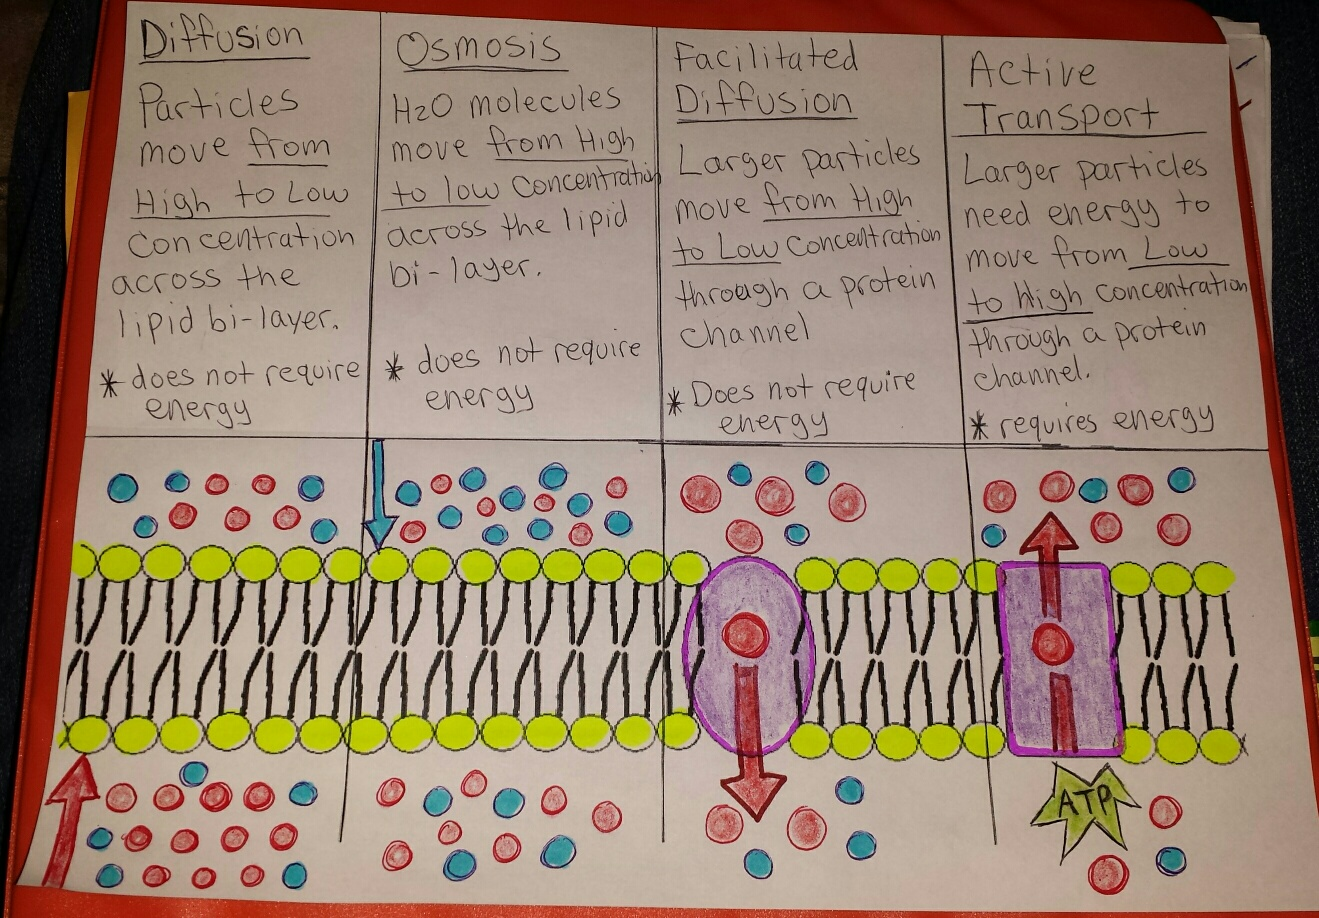 Diffusion
Particles
move from
High to Low
concentration
across the
lipid bi-layer.
* does not require
energy
Osmosis
H2O molecules
move from High
to low concentration
across the lipid
bi-layer.
* does not require
energy
Facilitated
Diffusion
Larger particles
move from High
to Low concentration
through a protein
channel
* Does not require
energy
Active
Transport
Larger particles
need energy to
move from Low
to high concentration
through a protein
channel.
* requires energy
ATP